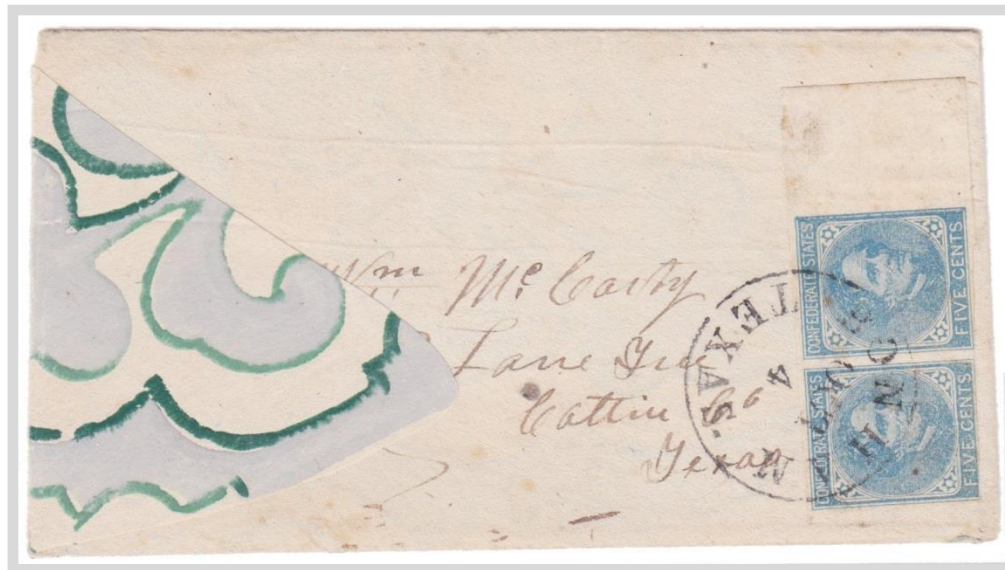 Wm McCarty
Lane
Texas
CONFEDERATE STATES
FIVE CENTS
CONFEDERATE STATES
FIVE CENTS
TEXAS.
4